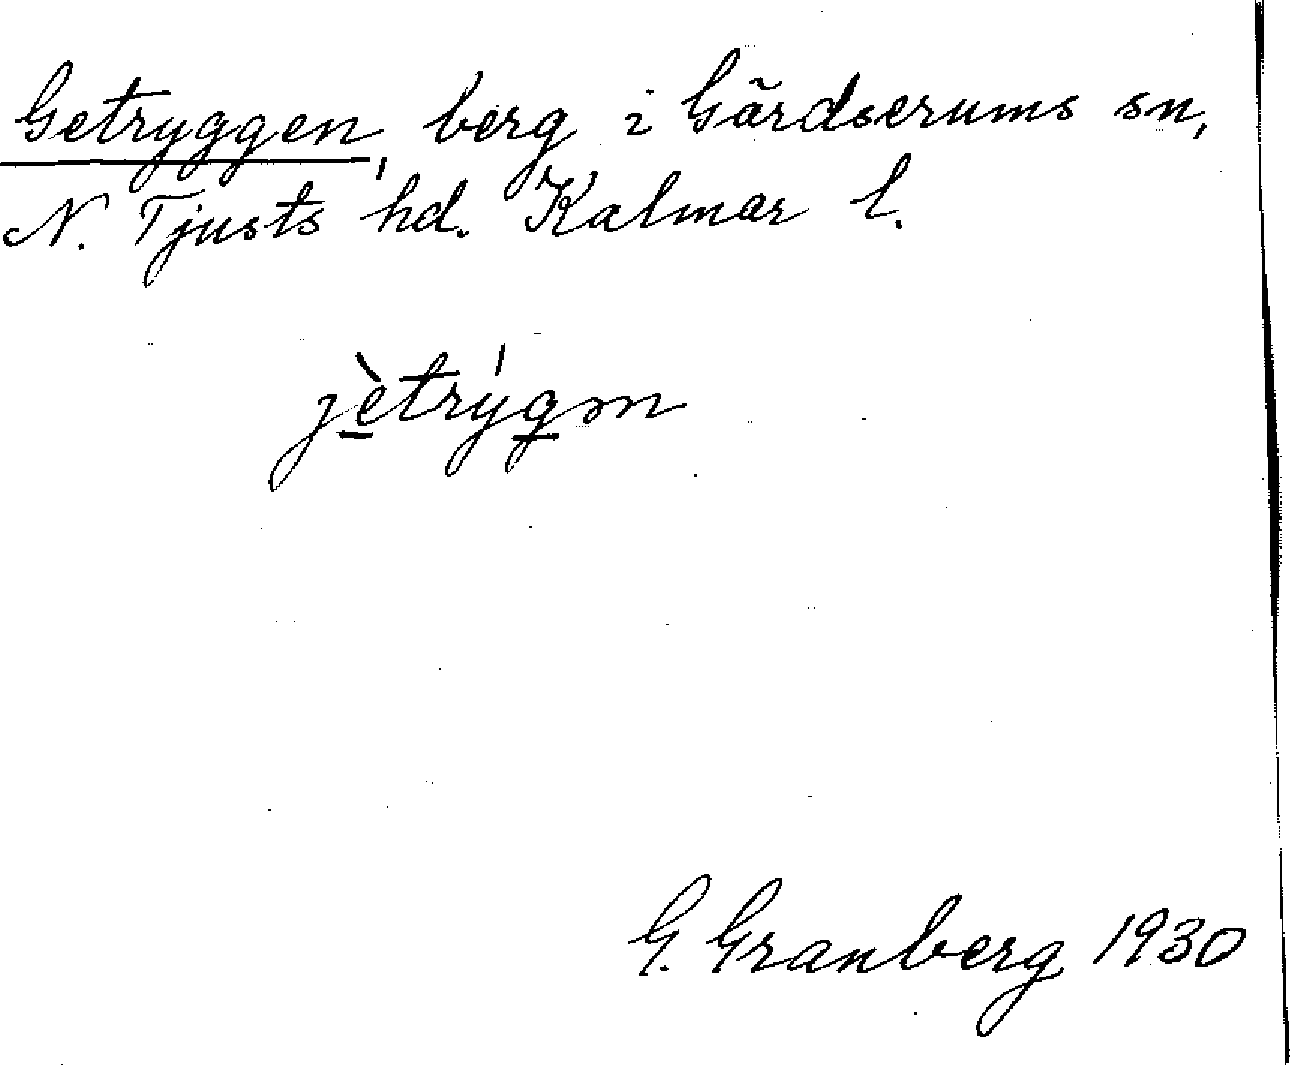 Getryggen, berg i Gärdserums sn,
N. Tjusts hd. Kalmar l.
jètrýgən
G. Granberg 1930